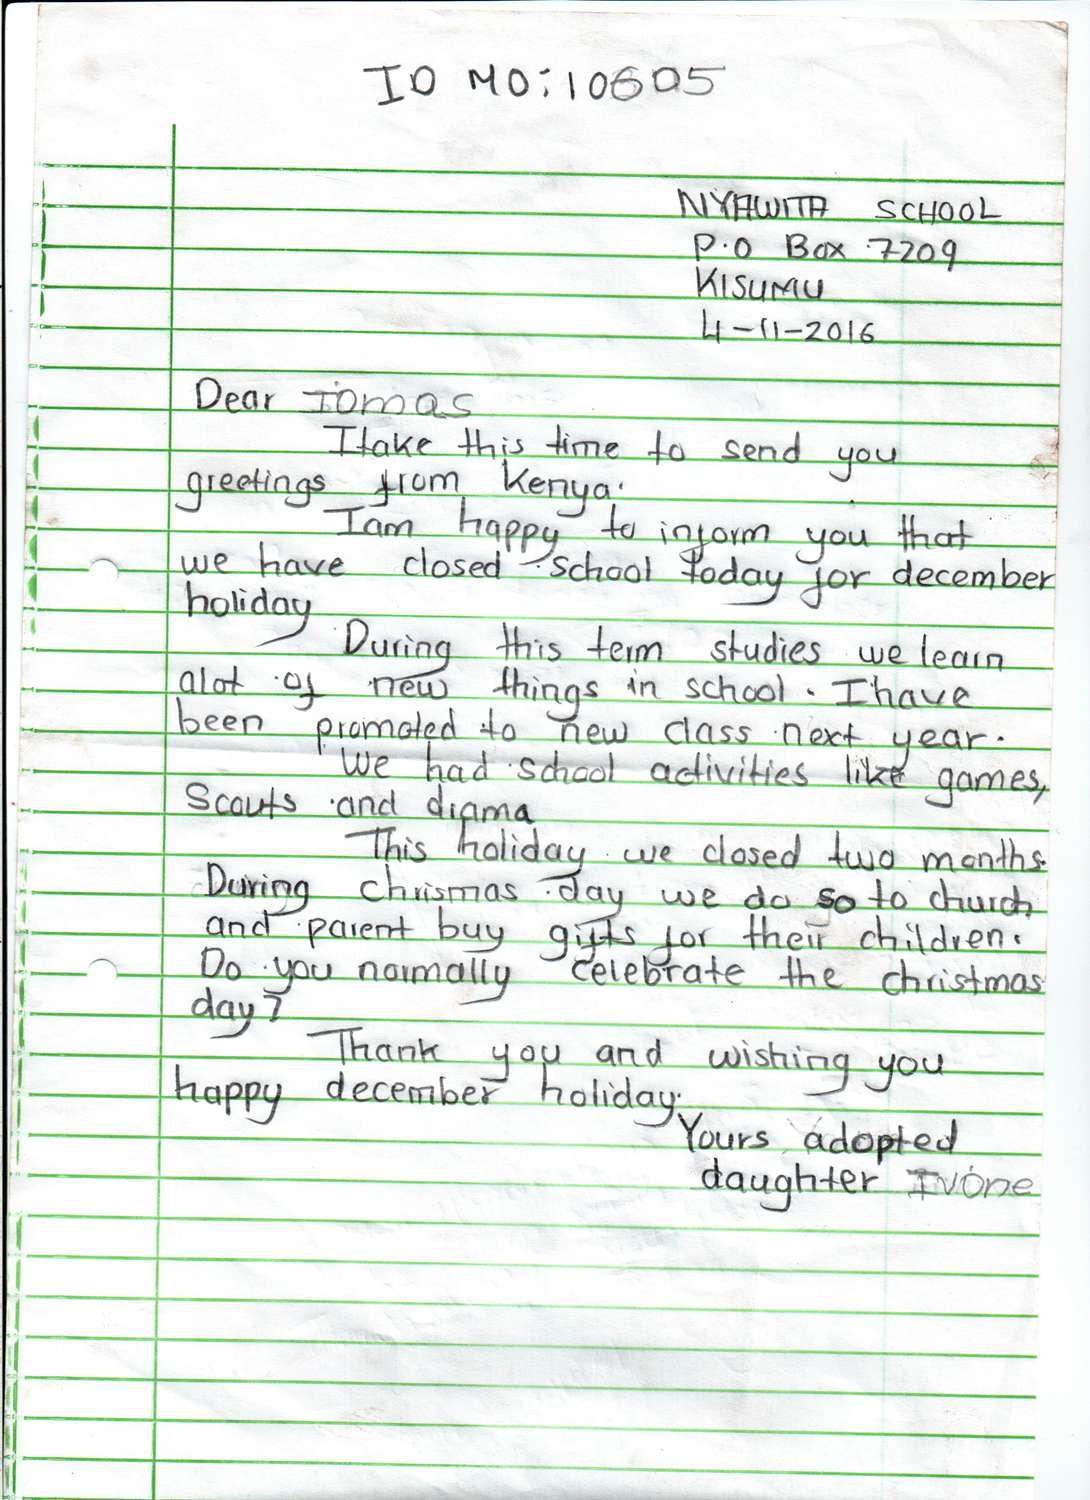 ID NO: 10605
NYAWITA SCHOOL
P.O Box 7209
KISUMU
4-11-2016
Dear Iomas
I take this time to send you
greetings from Kenya.
I am happy to inform you that
we have closed school today for december
holiday
During this term studies we learn
alot of new things in school. I have
been promoted to new class next year.
We had school activities like games,
Scouts and drama
This holiday we closed two months.
During chrismas day we do so to church
and parent buy gifts for their children.
Do you normally celebrate the christmas
day?
Thank you and wishing you
happy december holiday.
Yours adopted
daughter Ivone